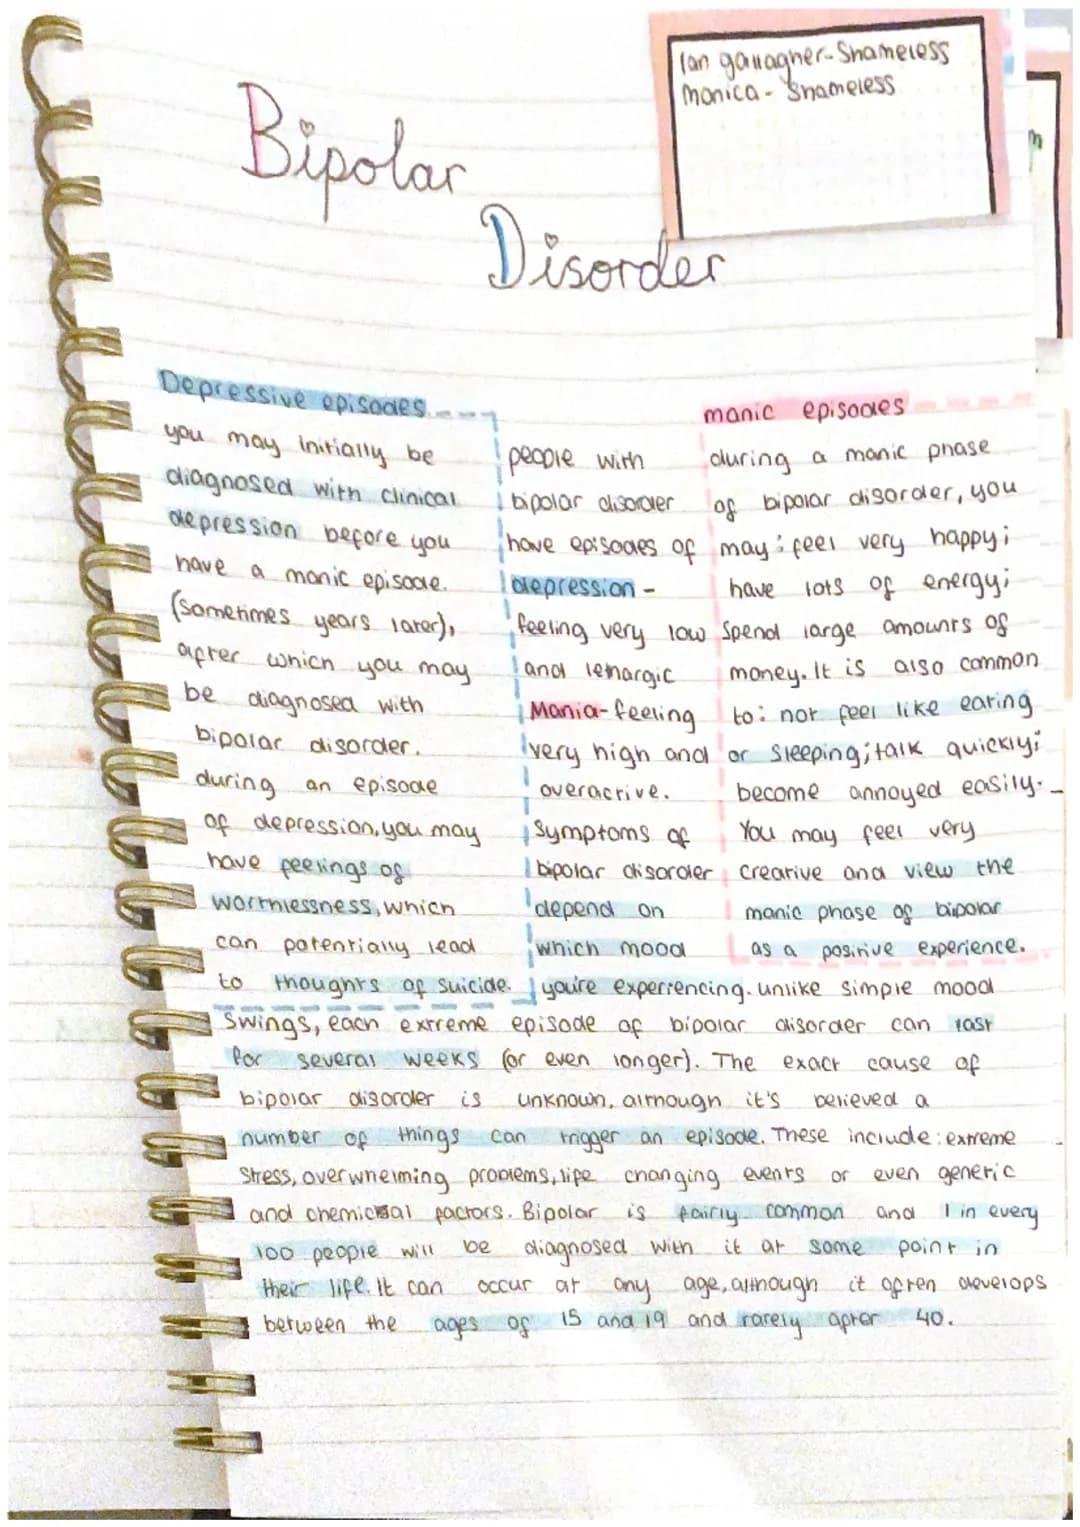 Ian gallagher-Shameless
monica - Shameless
Bipolar
Disorder
Depressive episodes
you may initially be
diagnosed with clinical
depression before you
have a manic episode.
(sometimes years later),
after which you may
be diagnosed with
bipolar disorder.
during an episode
of depression, you may
have feelings of
worthlessness, which
can potentially lead
to thoughts of suicide.
people with
bipolar disorder
have episodes of
depression -
feeling very low
and lethargic
Mania - feeling
very high and
overactive.
symptoms of
bipolar disorder
depend on
which mood
manic episodes
during a manic phase
of bipolar disorder, you
may: feel very happy;
have lots of energy;
spend large amounts of
money. It is also common
to: not feel like eating
or sleeping; talk quickly;
become annoyed easily.
You may feel very
creative and view the
manic phase of bipolar
as a positive experience.
you're experiencing. unlike simple mood
swings, each extreme episode of bipolar disorder can last
for several weeks (or even longer). The exact cause of
bipolar disorder is unknown, although it's believed a
number of things can trigger an episode. These include: extreme
stress, overwhelming problems, life changing events or even generic
and chemical factors. Bipolar is fairly common and 1 in every
100 people will be diagnosed with it at some point in
their life. It can occur at any age, although it often develops
between the ages of 15 and 19 and rarely after 40.